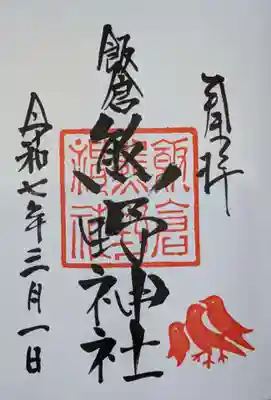 奉拝
飯倉
熊野神社
令和七年三月一日
飯倉
熊野
神社